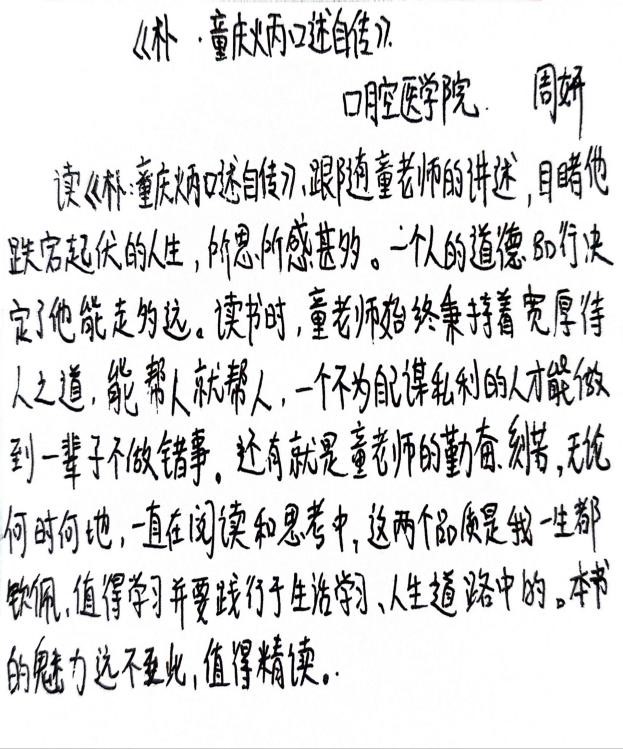 《朴·童庆炳口述自传》.
口腔医学院. 周妍
读《朴:童庆炳口述自传》,跟随童老师的讲述,目睹他
跌宕起伏的人生,所思所感甚多。一个人的道德品行决
定了他能走多远。读书时,童老师始终秉持着宽厚待
人之道,能帮人就帮人,一个不为自己谋私利的人才能做
到一辈子不做错事。还有就是童老师的勤奋刻苦,无论
何时何地,一直在阅读和思考中,这两个品质是我一生都
钦佩、值得学习并要践行于生活学习、人生道路中的。本书
的魅力远不至此,值得精读。